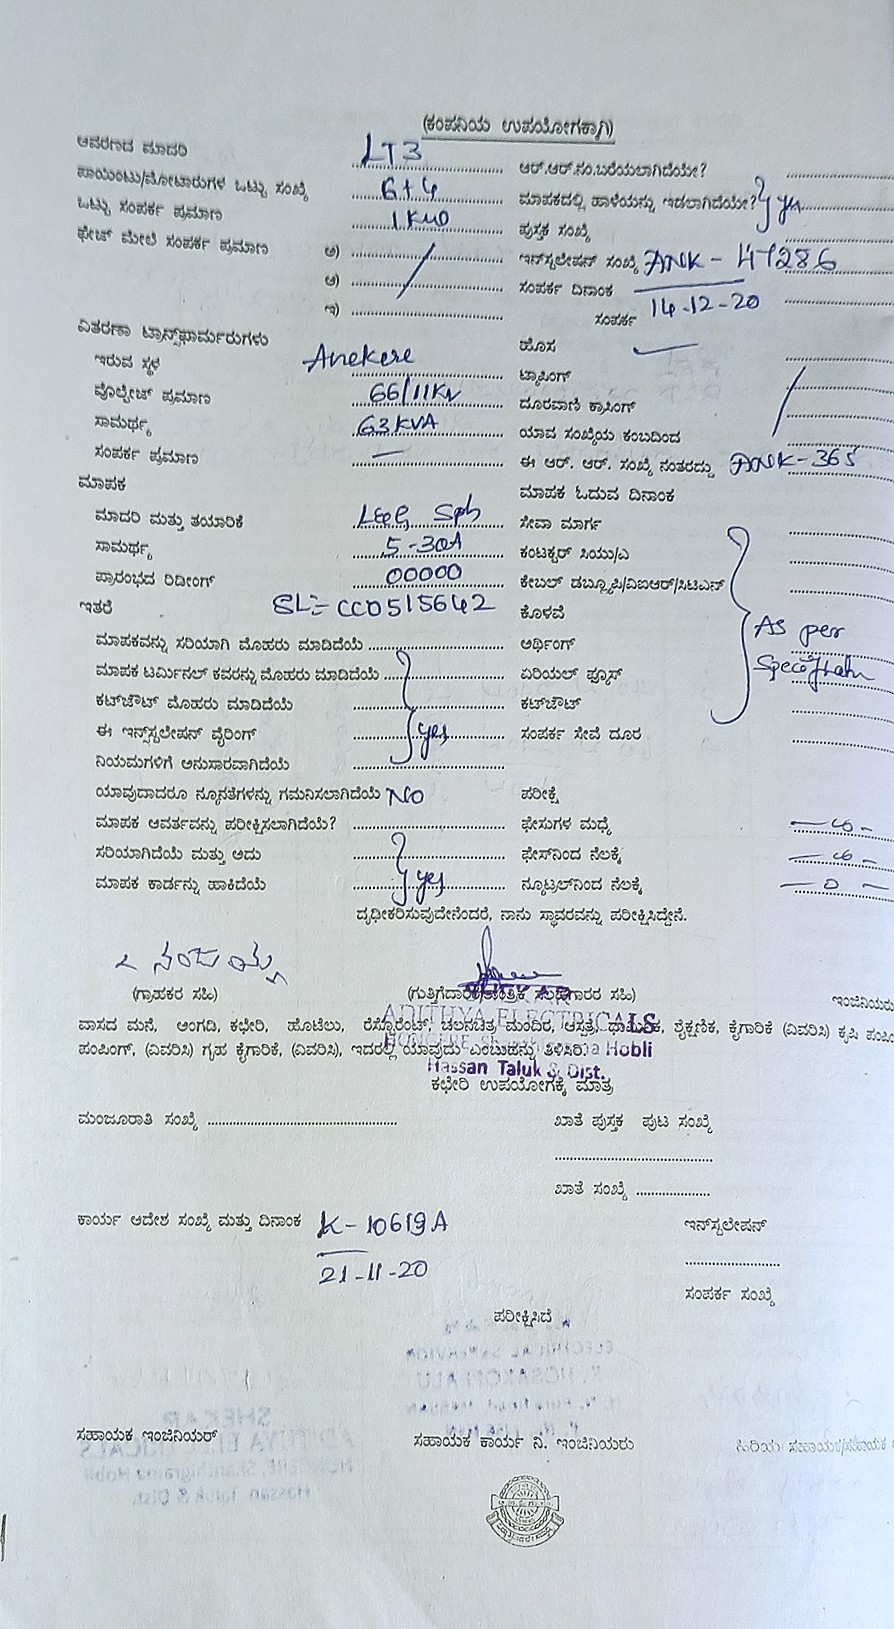 (ಕಂಪನಿಯ ಉಪಯೋಗಕ್ಕಾಗಿ)
ಆವರಣದ ಮಾದರಿ LT3 ಆರ್.ಆರ್.ನಂ.ಬರೆಯಲಾಗಿದೆಯೇ?
ಪಾಯಿಂಟು/ಮೋಟಾರುಗಳ ಒಟ್ಟು ಸಂಖ್ಯೆ 6+4 ಮಾಪಕದಲ್ಲಿ ಹಾಳೆಯನ್ನು ಇಡಲಾಗಿದೆಯೇ? yes
ಒಟ್ಟು ಸಂಪರ್ಕ ಪ್ರಮಾಣ 1 KW ಪುಸ್ತಕ ಸಂಖ್ಯೆ
ಫೇಟ್ ಮೇಲೆ ಸಂಪರ್ಕ ಪ್ರಮಾಣ ಅ) ಇನ್‌ಸ್ಟಲೇಷನ್ ಸಂಖ್ಯೆ ANK - 47286
ಆ) ಸಂಪರ್ಕ ದಿನಾಂಕ 14-12-20
ಇ) ಸಂಪರ್ಕ
ವಿತರಣಾ ಟ್ರಾನ್ಸ್‌ಫಾರ್ಮರುಗಳು
ಇರುವ ಸ್ಥಳ Anekere ಹೊಸ
ವೊಲ್ಟೇಜ್ ಪ್ರಮಾಣ 66/11KV ಟ್ಯಾಪಿಂಗ್
ಸಾಮರ್ಥ್ಯ 63 KVA ದೂರವಾಣಿ ಕ್ರಾಸಿಂಗ್
ಸಂಪರ್ಕ ಪ್ರಮಾಣ — ಯಾವ ಸಂಖ್ಯೆಯ ಕಂಬದಿಂದ
ಮಾಪಕ ಈ ಆರ್. ಆರ್. ಸಂಖ್ಯೆ ನಂತರದ್ದು ANK-365
ಮಾಪಕ ಓದುವ ದಿನಾಂಕ
ಮಾದರಿ ಮತ್ತು ತಯಾರಿಕೆ ಸೇವಾ ಮಾರ್ಗ
ಸಾಮರ್ಥ್ಯ 5-30A ಕಂಟಕ್ಟರ್ ಸಿಯು/ಎ
ಪ್ರಾರಂಭದ ರಿಡೀಂಗ್ 00000 ಕೇಬಲ್ ಡಬ್ಲ್ಯೂಪಿ/ವಿಐಆರ್/ಸಿಟಿಎಸ್
ಇತರೆ SL:- CC0515642 ಕೊಳವೆ
ಮಾಪಕವನ್ನು ಸರಿಯಾಗಿ ಮೊಹರು ಮಾಡಿದೆಯೆ ಅರ್ಥಿಂಗ್ As per
ಮಾಪಕ ಟರ್ಮಿನಲ್ ಕವರನ್ನು ಮೊಹರು ಮಾಡಿದೆಯೆ ಏರಿಯಲ್ ಫ್ಯೂಸ್
ಕಟ್‌ಔಟ್ ಮೊಹರು ಮಾಡಿದೆಯೆ ಕಟ್‌ಔಟ್
ಈ ಇನ್ಸ್‌ಸ್ಟಲೇಷನ್ ವೈರಿಂಗ್ yes ಸಂಪರ್ಕ ಸೇವೆ ದೂರ
ನಿಯಮಗಳಿಗೆ ಅನುಸಾರವಾಗಿದೆಯೆ
ಯಾವುದಾದರೂ ನ್ಯೂನತೆಗಳನ್ನು ಗಮನಿಸಲಾಗಿದೆಯೆ NO ಪರೀಕ್ಷೆ
ಮಾಪಕ ಆವರ್ತವನ್ನು ಪರೀಕ್ಷಿಸಲಾಗಿದೆಯೆ? ಫೇಸುಗಳ ಮಧ್ಯೆ
ಸರಿಯಾಗಿದೆಯೆ ಮತ್ತು ಅದು ಫೇಸ್‌ನಿಂದ ನೆಲಕ್ಕೆ
ಮಾಪಕ ಕಾರ್ಡನ್ನು ಹಾಕಿದೆಯೆ yes ನ್ಯೂಟ್ರಲ್‌ನಿಂದ ನೆಲಕ್ಕೆ — 0 —
ದೃಢೀಕರಿಸುವುದೇನೆಂದರೆ, ನಾನು ಸ್ಥಾವರವನ್ನು ಪರೀಕ್ಷಿಸಿದ್ದೇನೆ.
ನಂಜಯ್ಯ
(ಗ್ರಾಹಕರ ಸಹಿ) (ಗುತ್ತಿಗೆದಾರರ ಸಹಿ) ಇಂಜಿನಿಯರು
ADITHYA ELECTRICALS
ವಾಸದ ಮನೆ, ಅಂಗಡಿ, ಕಛೇರಿ, ಹೊಟೆಲು, ರೆಸ್ಟೋರೆಂಟ್, ಚಲನಚಿತ್ರ ಮಂದಿರ, ಆಸ್ಪತ್ರೆ, ಧಾರ್ಮಿಕ, ಶೈಕ್ಷಣಿಕ, ಕೈಗಾರಿಕೆ (ವಿವರಿಸಿ) ಕೃಷಿ ಪಂಪಿಂ
ಪಂಪಿಂಗ್, (ವಿವರಿಸಿ) ಗೃಹ ಕೈಗಾರಿಕೆ, (ವಿವರಿಸಿ), ಇದರಲ್ಲಿ ಯಾವುದು ಎಂಬುದನ್ನು ತಿಳಿಸಿರಿ. Hobli
Hassan Taluk & Dist.
ಕಛೇರಿ ಉಪಯೋಗಕ್ಕೆ ಮಾತ್ರ
ಮಂಜೂರಾತಿ ಸಂಖ್ಯೆ ಖಾತೆ ಪುಸ್ತಕ ಪುಟ ಸಂಖ್ಯೆ
ಖಾತೆ ಸಂಖ್ಯೆ
ಕಾರ್ಯ ಆದೇಶ ಸಂಖ್ಯೆ ಮತ್ತು ದಿನಾಂಕ K-10619A ಇನ್‌ಸ್ಟಲೇಷನ್
21-11-20
ಸಂಪರ್ಕ ಸಂಖ್ಯೆ
ಪರೀಕ್ಷಿಸಿದೆ
ಸಹಾಯಕ ಇಂಜಿನಿಯರ್ ಸಹಾಯಕ ಕಾರ್ಯ ನಿ. ಇಂಜಿನಿಯರು ಹಿರಿಯ ಸಹಾಯಕ/ಸಹಾಯಕ